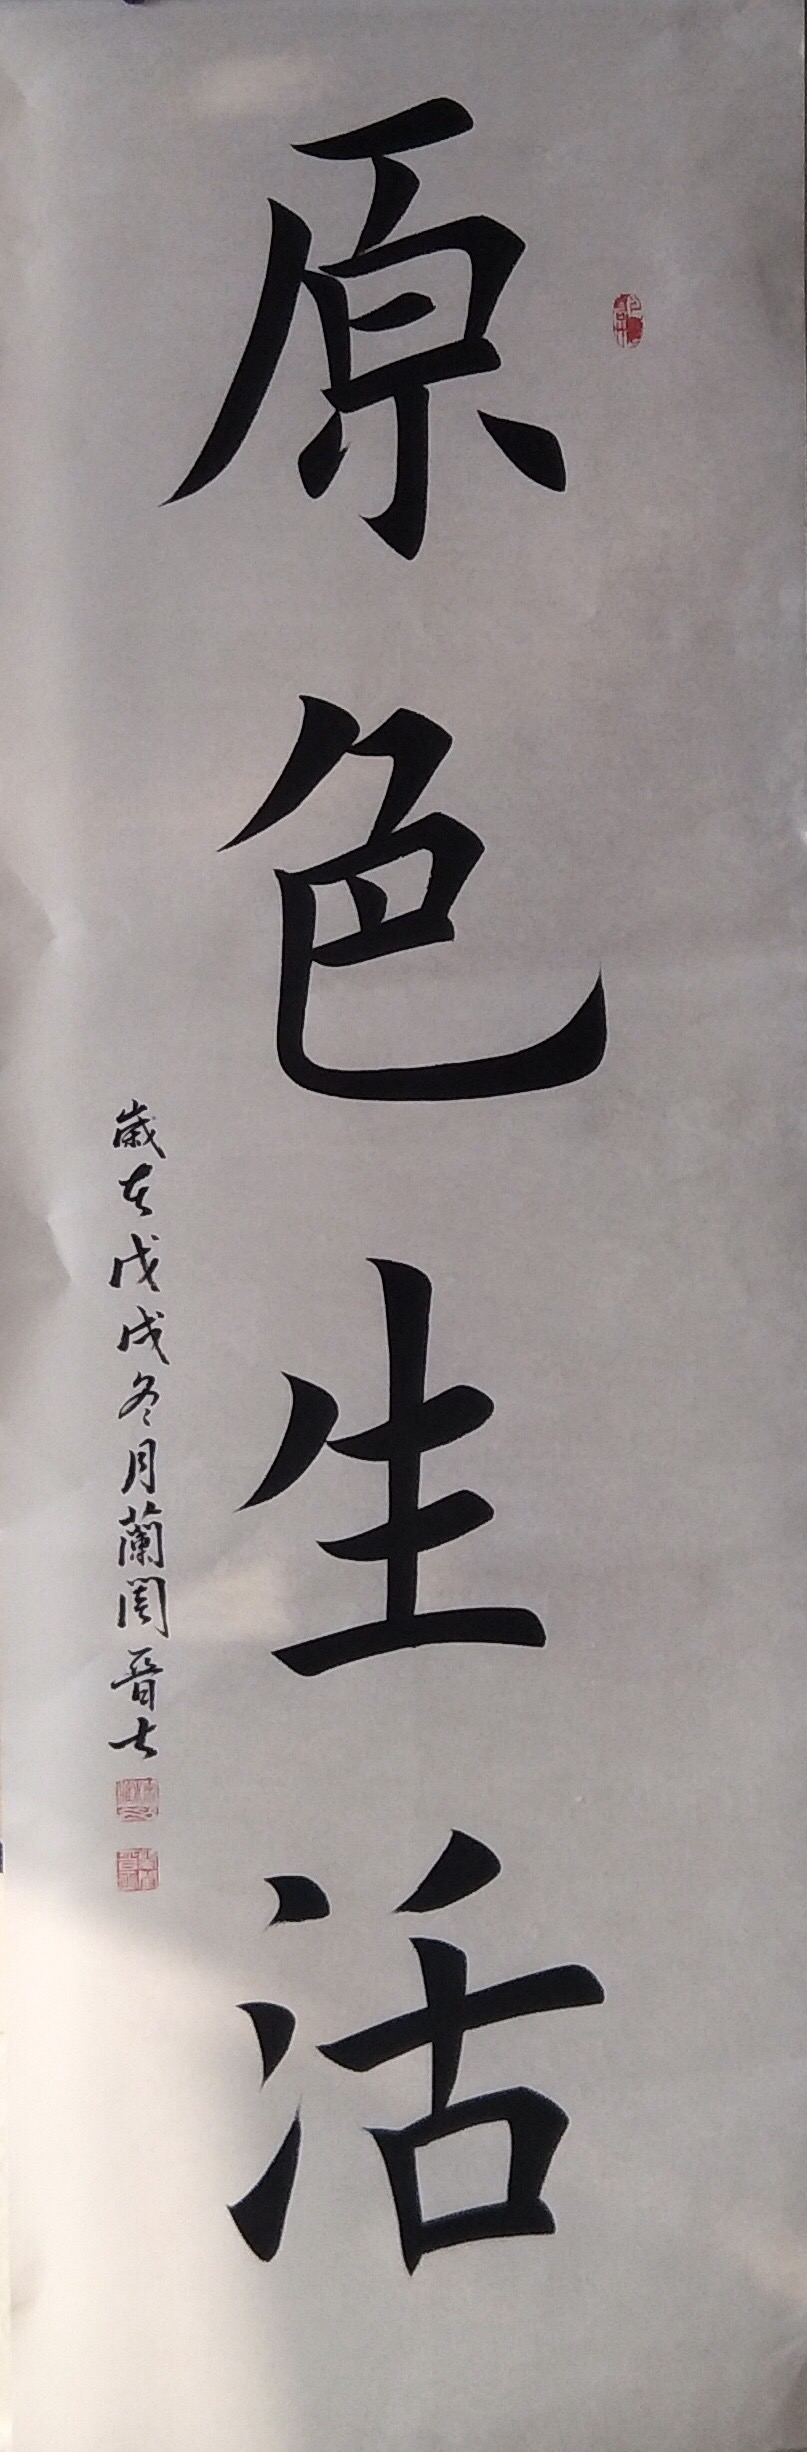 原色生活
歲在戊戌冬月蘭閣晉士